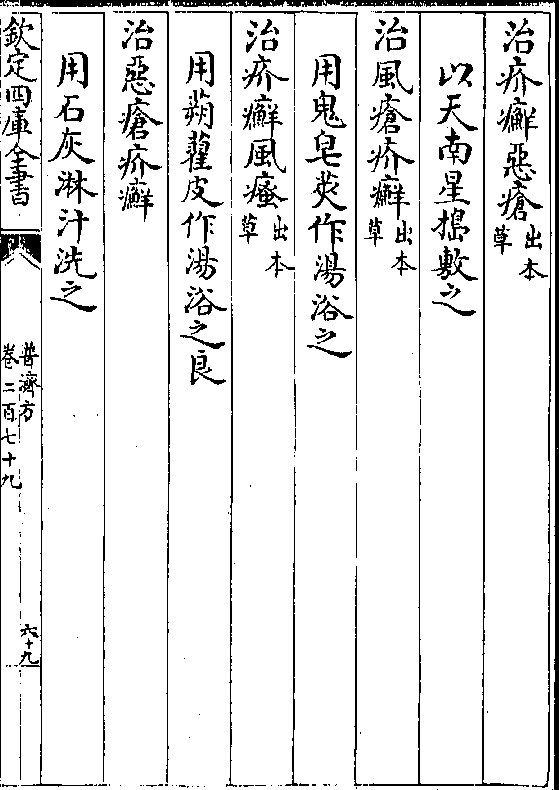 治疥癬惡瘡出本草
以天南星搗敷之
治風瘡疥癬出本草
用鬼皂莢作湯浴之
治疥癬風瘙出本草
用蒴藋皮作湯浴之良
治惡瘡疥癬
用石灰淋汁洗之
欽定四庫全書
普濟方
卷二百七十九
六十九